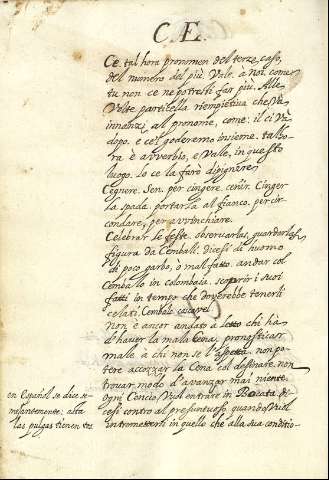 C.E.
Ce. tal hora pronomen del terzo caso,
del numero del più. Vale. a noi. come
tu non ce ne potresti far piu. Alle
Volte particella riempitiva che Và
innanzi al pronome, come: il ci Và
dopo. e ce'l goderemo insieme. talho-
ra è avverbio, e Vale, in questo
luogo. Io ce la farò dipignere
Cegnere. Sen. per cingere. cenir. Cinger
la spada. portarla al fianco. per cir-
condare, per avvinchiare.
Celebrar le feste. observarlas, guardarlas
figura da Cemball. dicesi di huomo
di poco garbo, o mal fatto. andar col
Cembalo in Colombaia. scoprir i suoi
fatti in tempo che doverebbe tenerli
celati. Cembalo cascavel
Non è ancor andato a letto chi ha
d'hauer la mala Cena. pronosticar
male à chi non se l'aspetta. non po-
tere accozzar la Cena col desinare. non
trovar modo d'avanzar mai niente.
ogni Cencio Vuol entrare in Bucata. di-
cesi contro al presuntuoso quando Vuol
intrometterli in quello che alla sua conditio-
en Español se dice se-
mejantemente: asta
las pulgas tienen tos